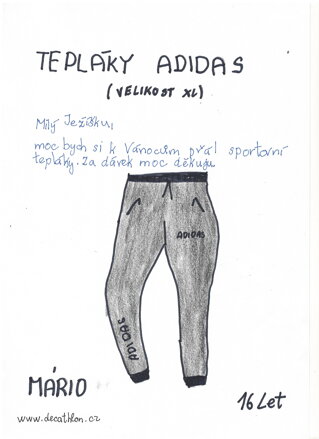 TEPLÁKY ADIDAS
(VELIKOST XL)
Milý Ježíšku,
moc bych si k Vánocům přál sportovní
tepláky. Za dárek moc děkuju
ADIDAS
ADIDAS
MÁRIO
16 Let
www.decathlon.cz